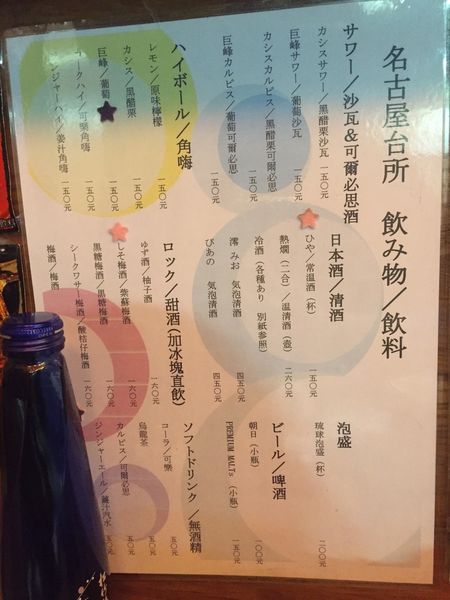 名古屋台所　飲み物／飲料
サワー／沙瓦＆可爾必思酒
カシスサワー／黒醋栗沙瓦　一五〇元
巨峰サワー／葡萄沙瓦　一五〇元
カシスカルピス／黒醋栗可爾必思　一五〇元
巨峰カルピス／葡萄可爾必思　一五〇元
ハイボール／角嗨
レモン／原味檸檬　一五〇元
カシス／黒醋栗　一五〇元
巨峰／葡萄　一五〇元
コークハイ／可樂角嗨　一五〇元
ジンジャーハイ／姜汁角嗨　一五〇元
日本酒／清酒
ひや／常温酒（杯）　一五〇元
熱燗（二合）／温清酒（壺）　二六〇元
冷酒（各種あり　別紙参照）
澪 みお　気泡清酒　四五〇元
ぴあの　気泡清酒　四五〇元
ロック／甜酒（加冰塊直飲）
ゆず酒／柚子酒　一六〇元
しそ梅酒／紫蘇梅酒　一六〇元
黒糖梅酒／黒糖梅酒　一六〇元
シークワサー梅酒／酸桔仔梅酒　一六〇元
梅酒／梅酒
泡盛
琉球泡盛（杯）　二〇〇元
ビール／啤酒
朝日（小瓶）　一〇〇元
PREMIUM MALTs（小瓶）　一五〇元
ソフトドリンク／無酒精
コーラ／可樂　五〇元
烏龍茶　五〇元
カルピス／可爾必思　五〇元
ジンジャーエール／薑汁汽水　五〇元